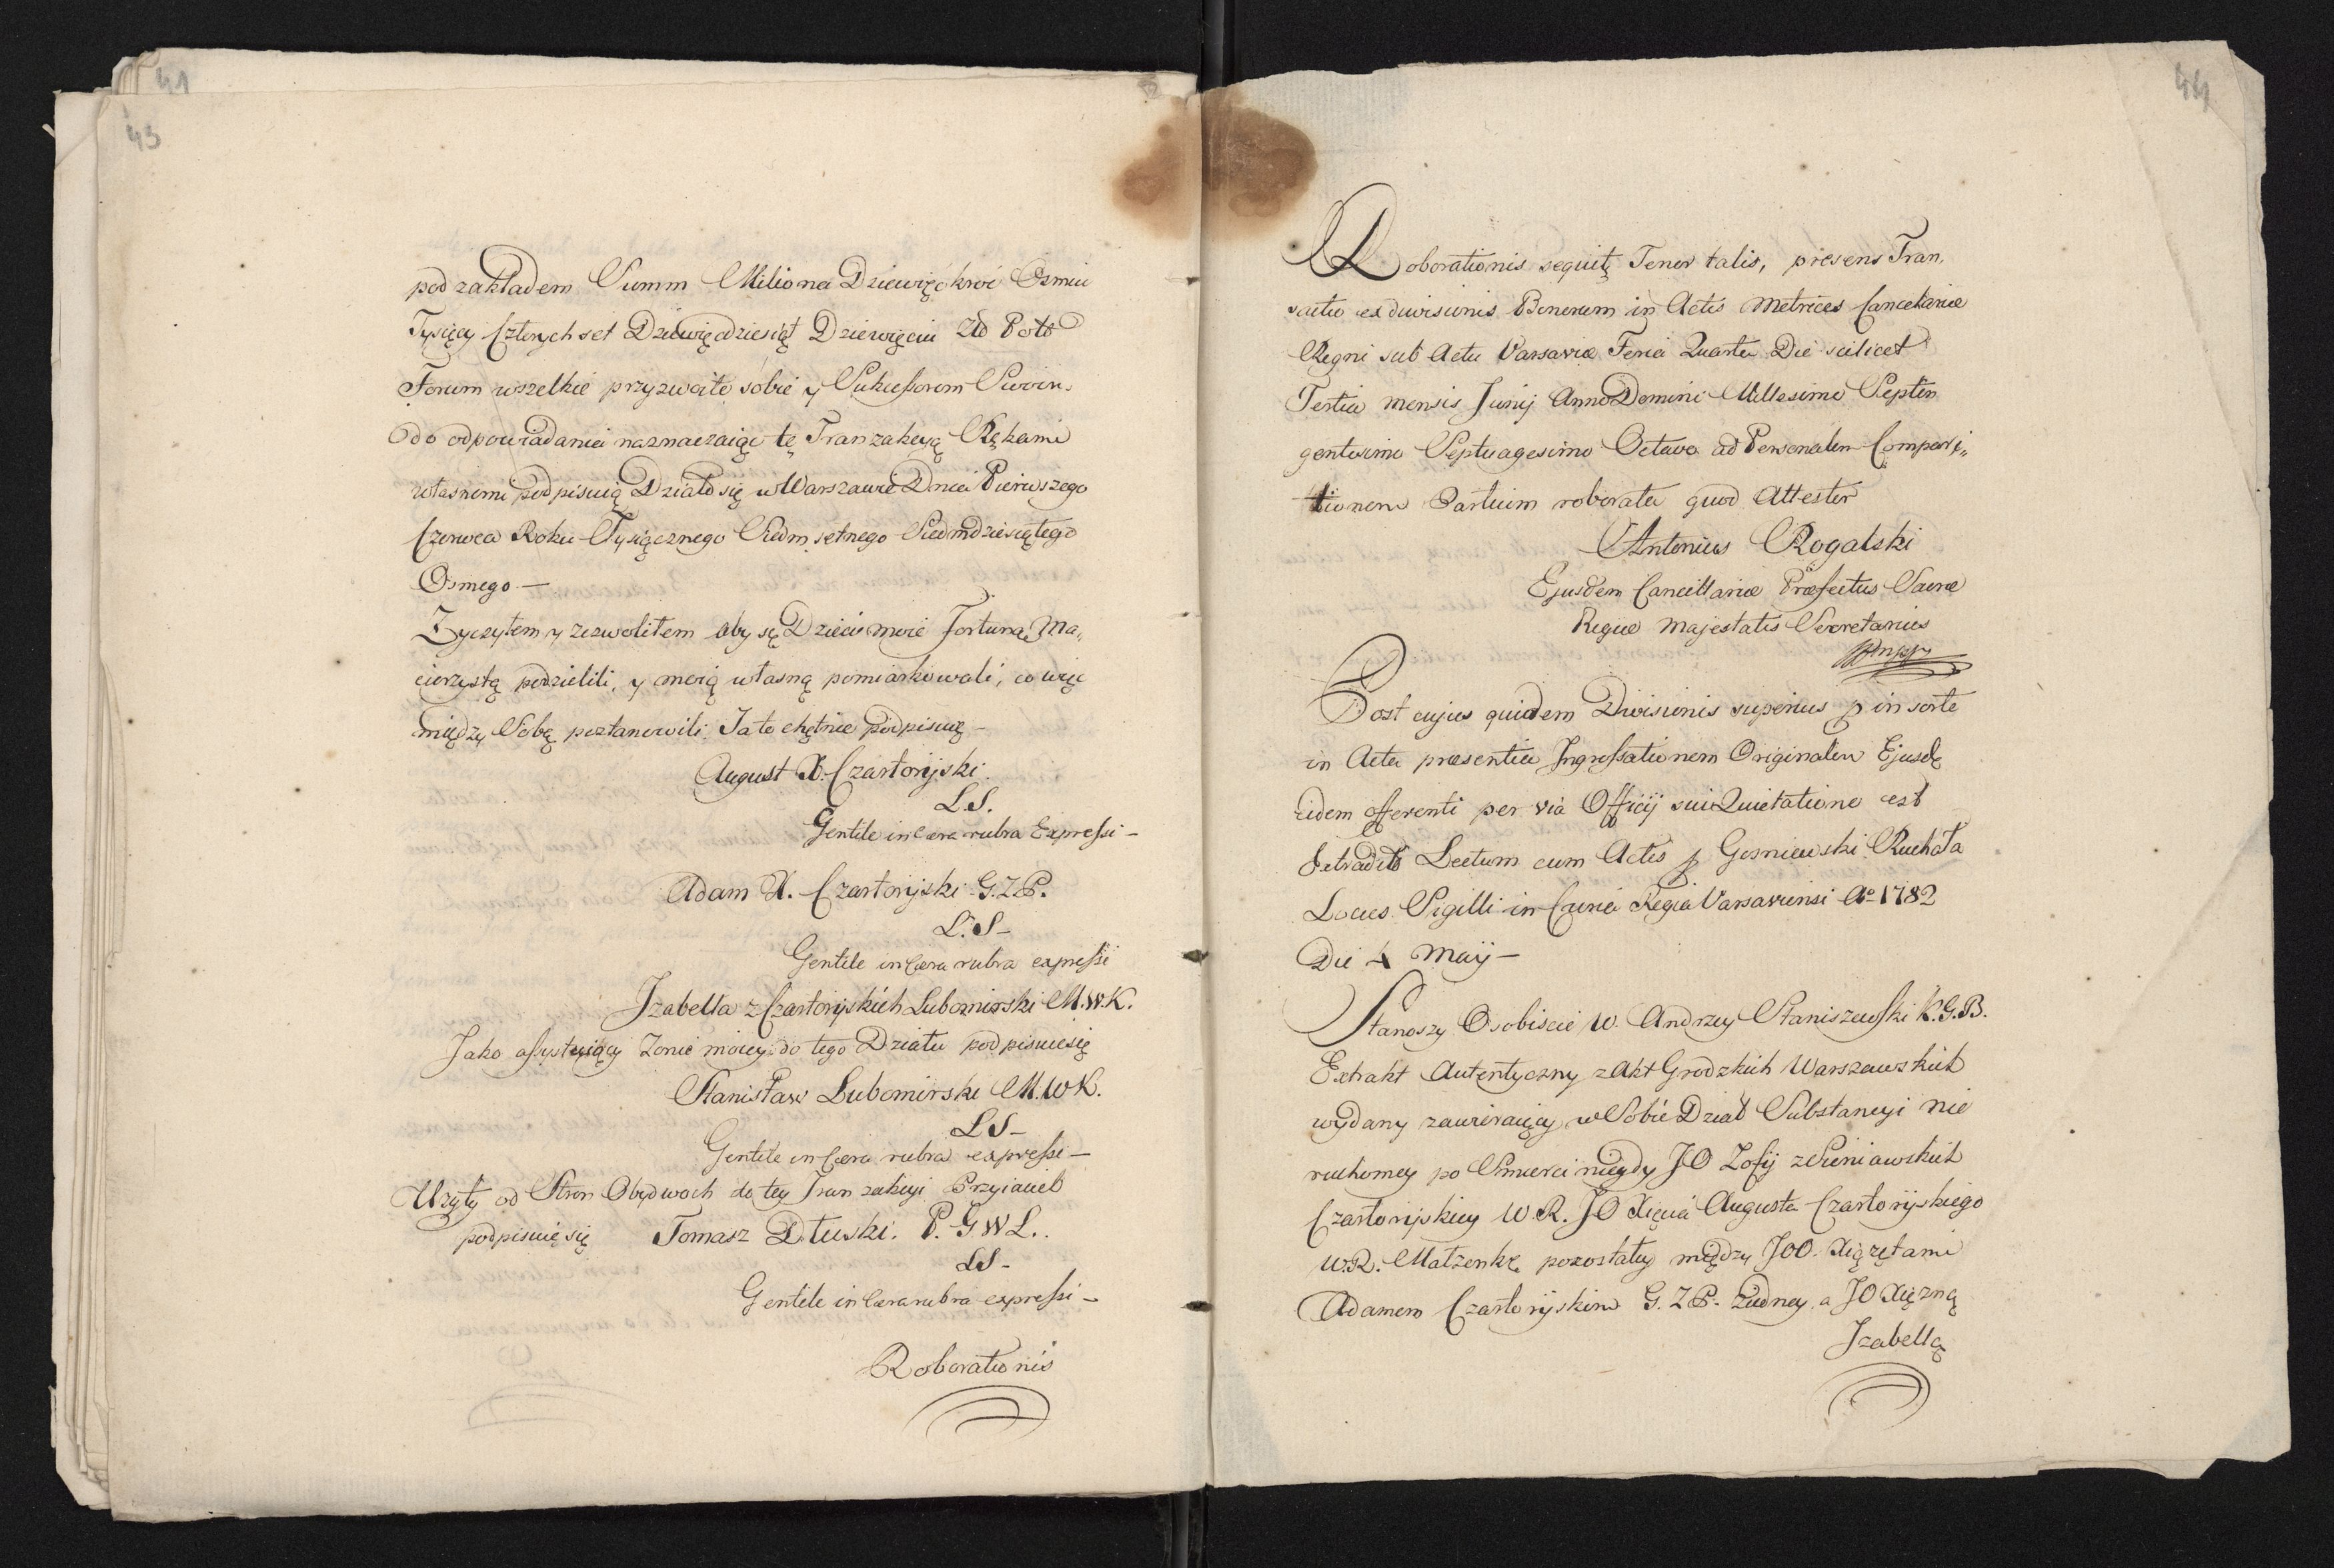 41
43
pod zakładem Summ Miliona Dziewięćkroć Osmiu
Tysięcy Czterych set Dziewięćdziesiąt Dziewięciu Zło Pols
Forum wszelkie przyzwoite sobie y Sukcessorom Swoim
do odpowiadania naznaczaiąc tę Tranzakcyą Rękami
własnemi podpisuią Działo się w Warszawie Dnia Pierwszego
Czerwca Roku Tysiącznego Siedmsetnego Siedmdziesiątego
Osmego —
Zyczyłem y zezwoliłem aby się Dzieci moie Fortuną Ma„
cierzystą podzielili, y moią własną pomiarkowali, co więc
między Sobą postanowili Ja to chętnie podpisuię —
August X. Czartoryski.
L.S.
Gentile in Cera rubra Expressi —
Adam X. Czartoryski G.Z.P.
L.S —
Gentile in Cera rubra expressi
Izabella z Czartoryskich Lubomirski M.W.K.
Jako assystuiący Zonie moiey do tego Działu podpisuię się
Stanisław Lubomirski M.W.K.
LS —
Gentile in Cera rubra expressi —
Użyty od Stron Obydwoch do tey Tranzakcyi Przyiaciel
podpisuię się Tomasz Dłuski. P.G.W.L..
LS —
Gentile in Cera rubra expressi —
Roborationis
44
Roborationis sequitę Tenor talis, presens Tran,
sactio ex divisionis Bonorum in Actis Metrices Cancelariæ
Regni sub Actu Varsaviæ Feria Quarta Die scilicet
Tertia mensis Junij Anno Domini Millesimo Septin
gentesimo Septuagesimo Octavo ad Personalem Compari„
tionem Partium roborata quod Attestor
Antonius Rogalski
Ejusdem Cancellariæ Præfectus Sacræ
Regiæ Majestatis Secretarius
mppr
Post cujus quidem Divisionis superius p in serte
in Acta præsentia Ingrossationem Originalem Ejusdę
eidem offerenti per via Officij sui Quietatione est
extradita Lectum cum Actis p Gosniewski Ruchała
Locus Sigilli in Curia Regia Varsaviensi Ao 1782
Die 4 Maij —
Stanąszy Osobiscie W. Andrzey Staniszewski K.G.B.
Extrakt Autentyczny z Akt Grodzkich Warszawskich
wydany zawieraiący w Sobie Dział Substancyi nie
ruchomey po Smierci niegdy JO Zofij z Sieniawskich
Czartoryskiey W.R. JO Xięcia Augusta Czartoryskiego
W.R. Małżonkę pozostałey między JOO. Xiążętami
Adamem Czartoryskim G.Z.P. z iedney, a JO Xiężną
Izabellą